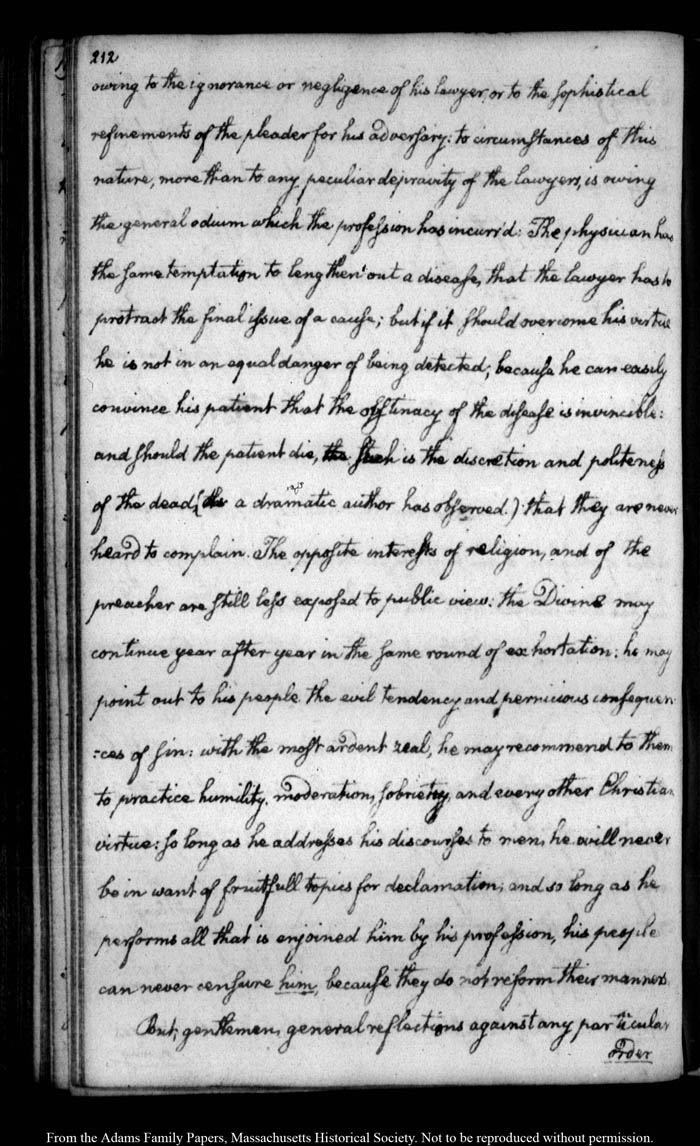 212
owing to the ignorance or negligence of his lawyer, or to the sophistical
refinements of the pleader for his adversary: to circumstances of this
nature, more than to any peculiar depravity of the lawyers, is owing
the general odium which the profession has incurr'd: The physician has
the same temptation to lengthen out a disease, that the lawyer has to
protract the final issue of a cause; but if it should overcome his virtue
he is not in an equal danger of being detected; because he can easily
convince his patient that the obstinacy of the disease is invincible:
and should the patient die, the such is the discretion and politeness
of the dead, (as a dramatic author has observed.) that they are never
heard to complain. The opposite interests of religion, and of the
preacher are still less exposed to public view: the Divine may
continue year after year in the same round of exhortation: he may
point out to his people the evil tendency and pernicious consequen:
:ces of sin: with the most ardent zeal, he may recommend to them
to practice humility, moderation, sobriety, and every other Christian
virtue: so long as he addresses his discourses to men, he will never
be in want of fruitfull topics for declamation; and so long as he
performs all that is enjoined him by his profession, his people
can never censure him, because they do not reform their manners.
But, gentlemen, general reflections against any particular
order
From the Adams Family Papers, Massachusetts Historical Society. Not to be reproduced without permission.